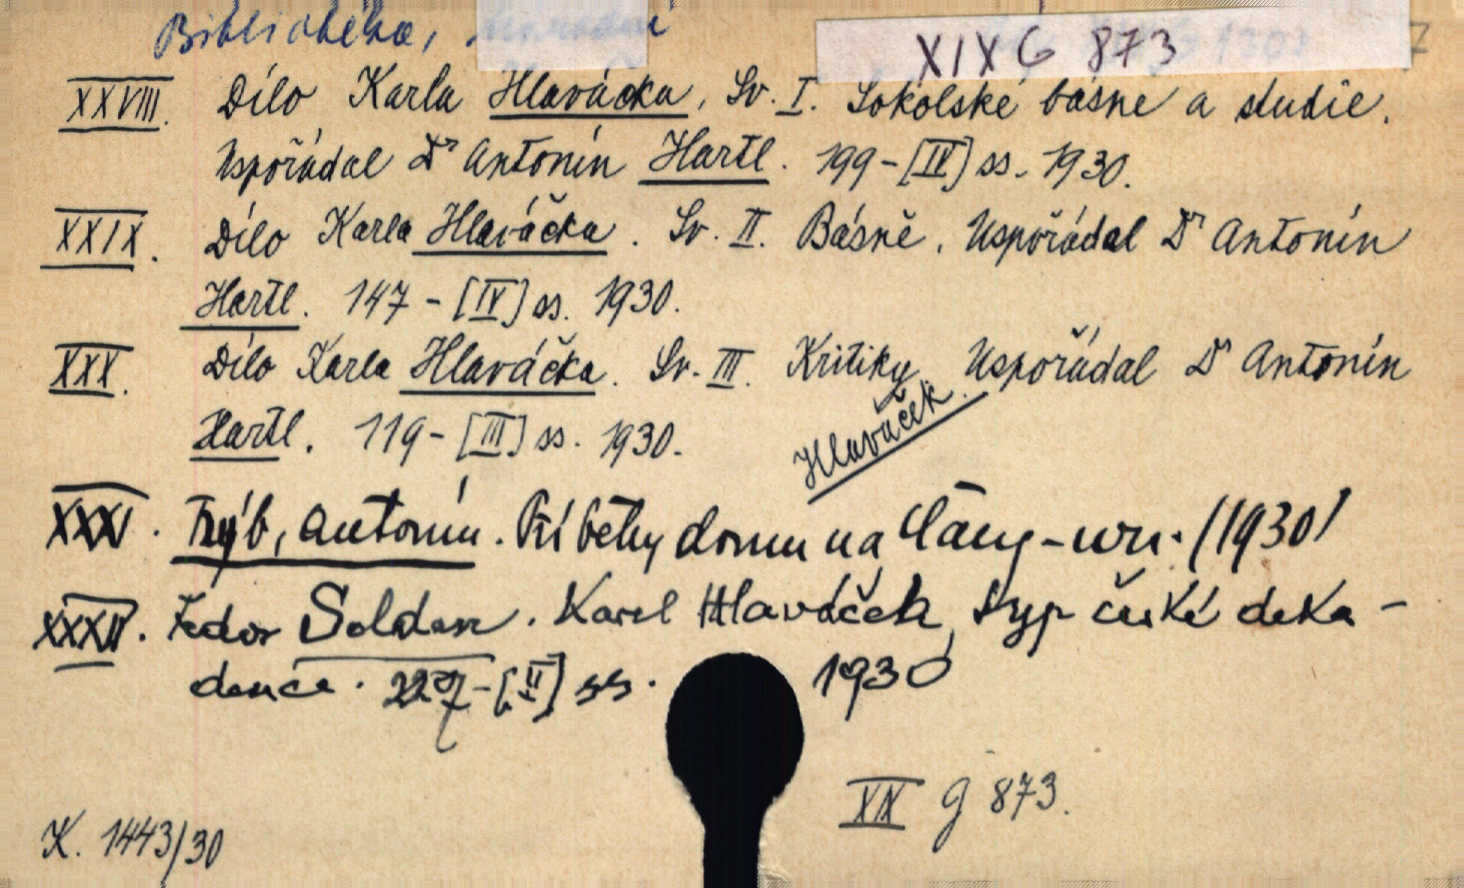 Bibliothéka,
XIX G 873
XXVIII. Dílo Karla Hlaváčka, Sv. I. Sokolské básně a studie.
Uspořádal Dr Antonín Hartl. 199-[IV] ss. 1930.
XXIX. Dílo Karla Hlaváčka. Sv. II. Básně. Uspořádal Dr Antonín
Hartl. 147-[IV] ss. 1930.
XXX. Dílo Karla Hlaváčka. Sv. III. Kritiky. Uspořádal Dr Antonín
Hartl. 119-[III] ss. 1930.
Hlaváček
XXXI. Trýb, Antonín. Příběhy domu na (1930)
XXXII. Fedor Soldan. Karel Hlaváček, typ české deka-
dence. 227-[II] ss. 1930
XIX g 873.
K. 1443/30